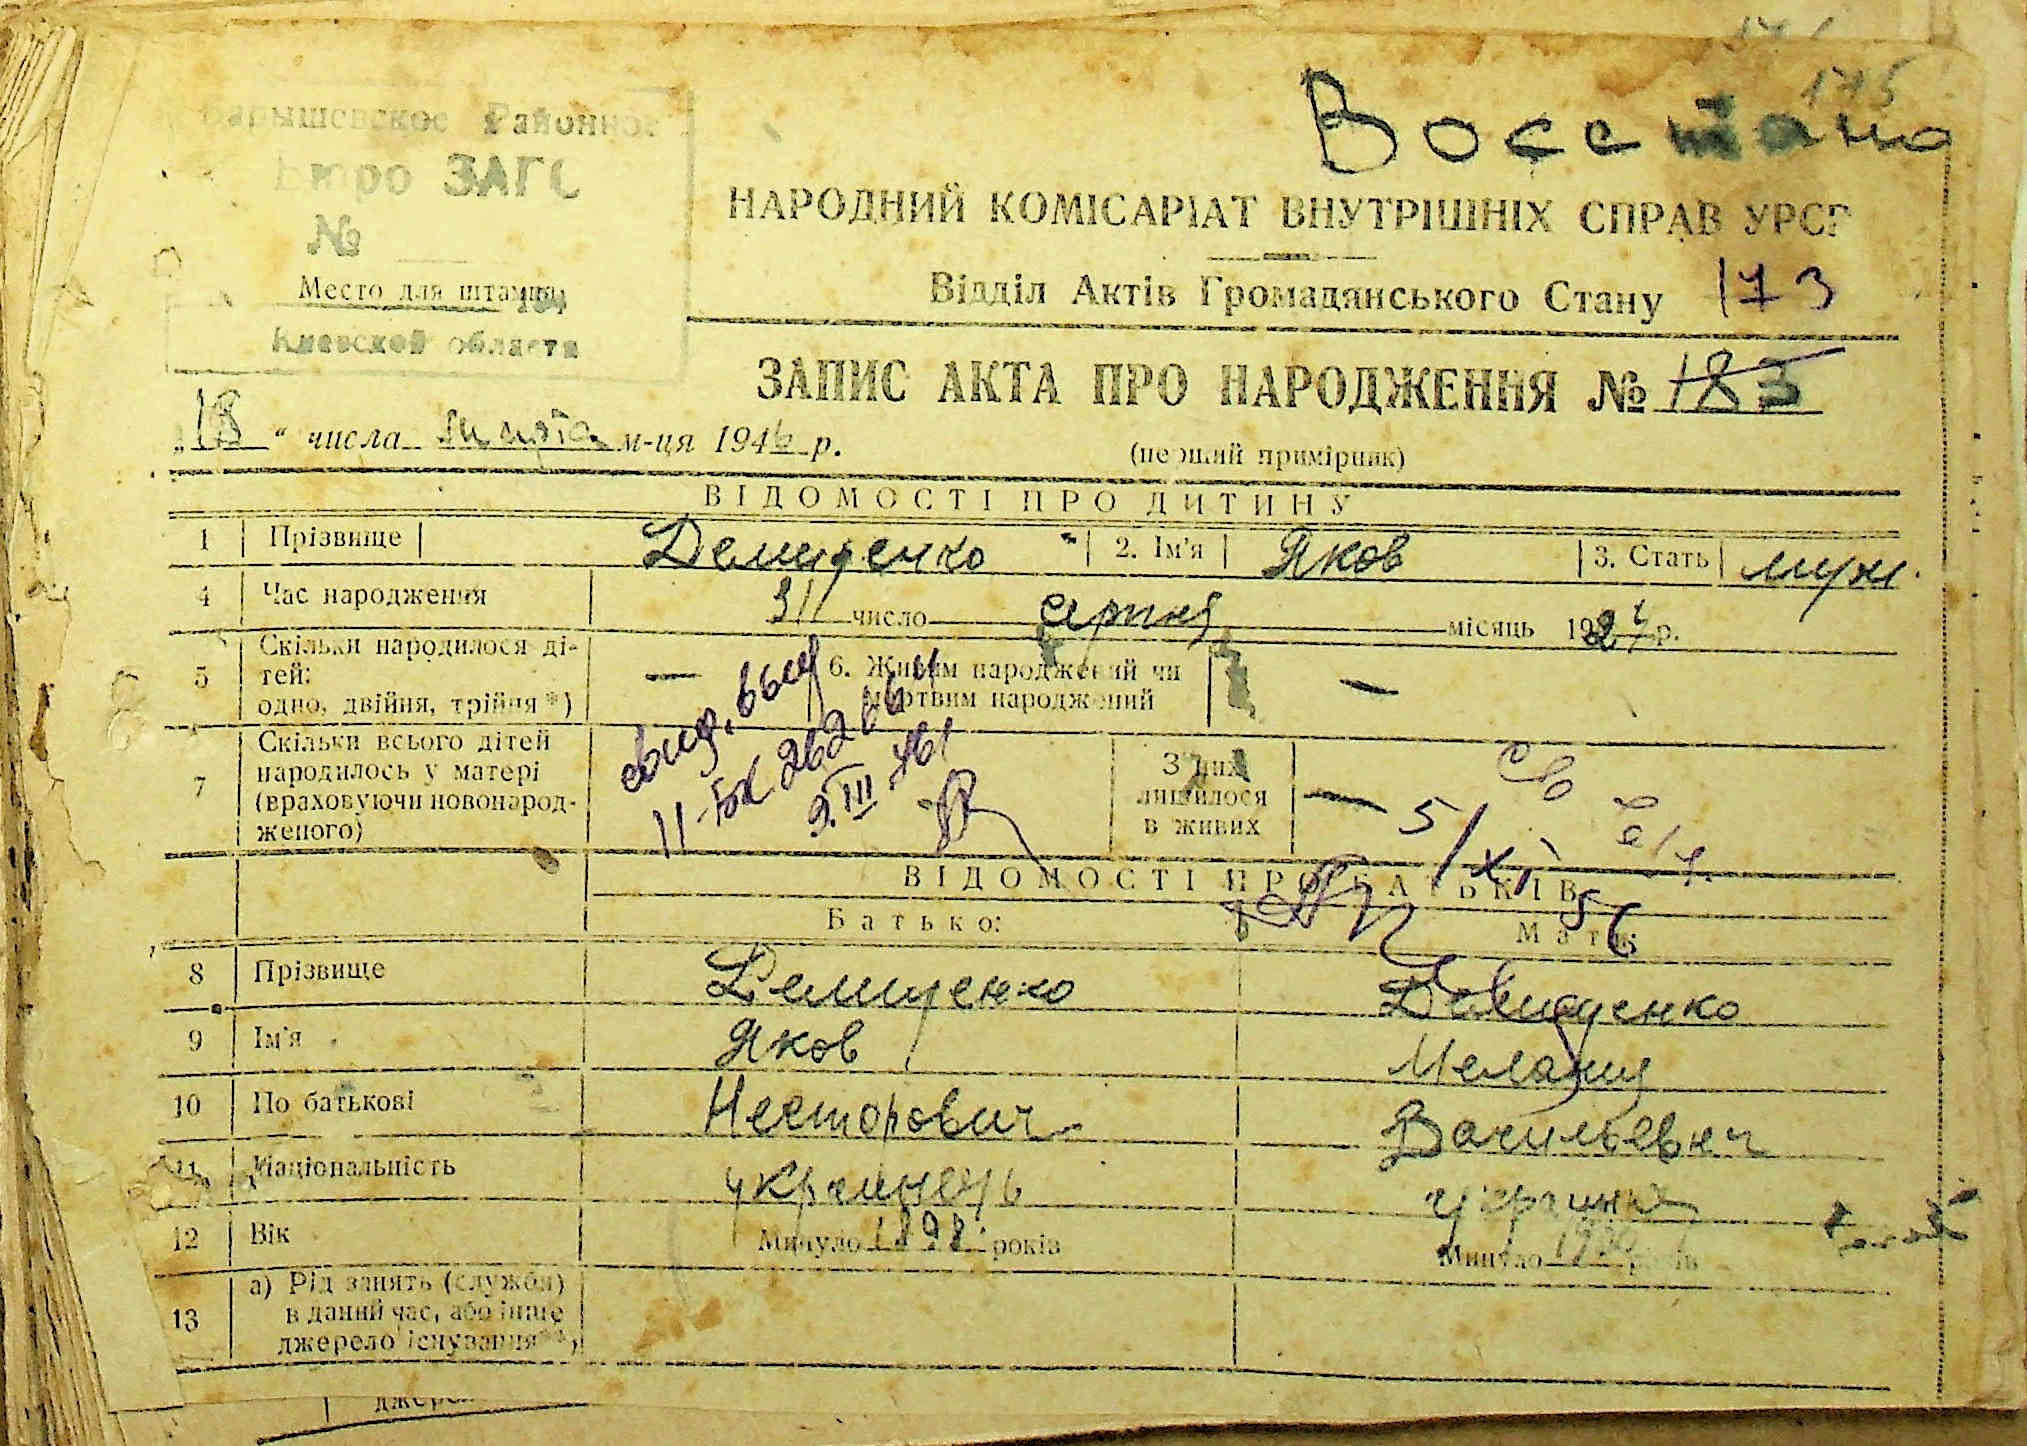 175
Восстано
Барышевское Районное
Бюро ЗАГС
№
Место для штампа
Киевской области
НАРОДНИЙ КОМІСАРІАТ ВНУТРІШНІХ СПРАВ УРСР
Відділ Актів Громадянського Стану 173
ЗАПИС АКТА ПРО НАРОДЖЕННЯ № 183
„18“ числа марта м-ця 194 р.
(перший примірник)
ВІДОМОСТІ ПРО ДИТИНУ
1 Прізвище Демиденко 2. Ім'я Яков 3. Стать муж.
4 Час народження 31 число серпня місяць 1924 р.
5 Скільки народилося ді-
тей:
одно, двійня, трійня *) —
6. Живим народжений чи
мертвим народжений —
7 Скільки всього дітей
народилось у матері
(враховуючи новонарод-
женого)
З них
лишилося
в живих —
свид. выд
9.III.
5/XI 56
ВІДОМОСТІ ПРО БАТЬКІВ
Батько: Мати:
8 Прізвище Демиденко Демиденко
9 Ім'я Яков Мелания
10 По батькові Несторович Васильевич
11 Національність украинець украинка
12 Вік Минуло 1898 років Минуло 1900 років
13 а) Рід занять (служби)
в даний час, або інше
джерело існування **)